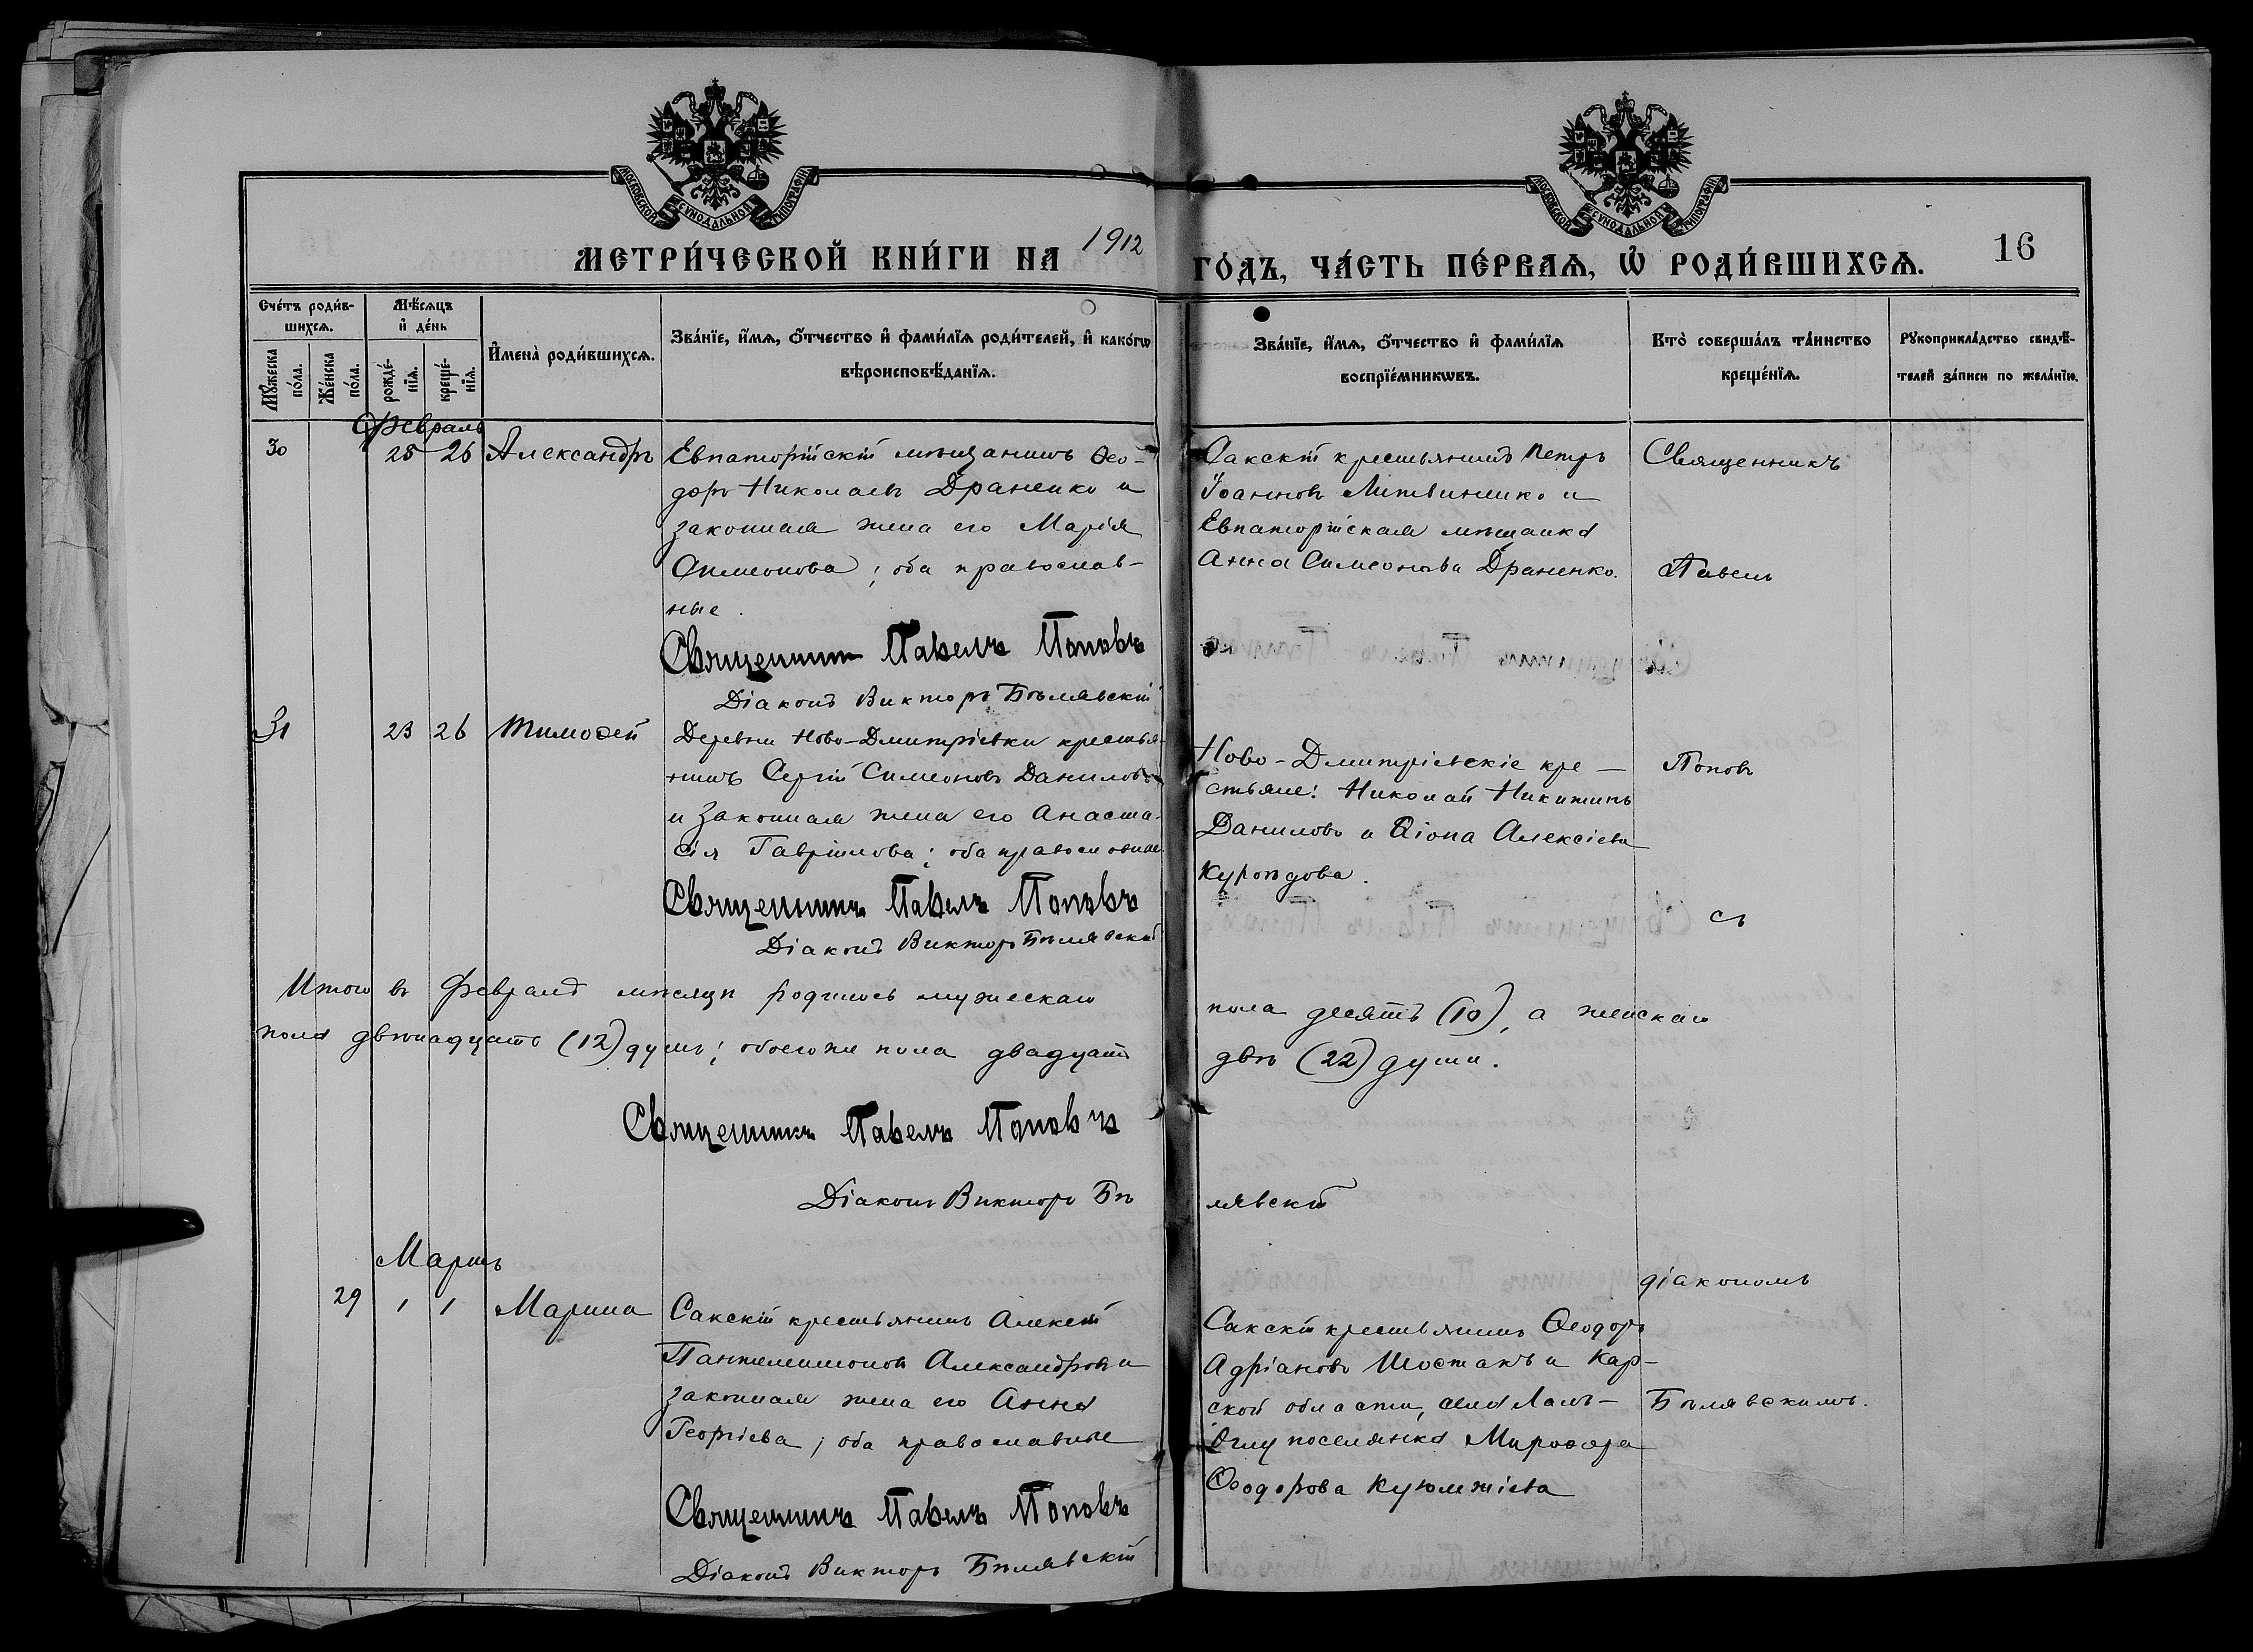 МОСКОВСКОЙ СѴНОДАЛЬНОЙ ТИПОГРАФІИ
МОСКОВСКОЙ СѴНОДАЛЬНОЙ ТИПОГРАФІИ
МЕТРИ́ЧЕСКОЙ КНИ́ГИ НА 1912 ГО́ДЪ, ЧА́СТЬ ПЕ́РВАѦ, Ѡ҆ РОДИ́ВШИХСѦ.
16
Сче́тъ роди́в-
шихсѧ.
Мѣ́сѧцъ
и҆ де́нь
И҆мена̀ роди́вшихсѧ.
Зва́нїе, и҆́мѧ, ѻ҆́тчество и҆ фами́лїѧ роди́телей, и҆ како́гѡ
вѣроисповѣ́данїѧ.
Зва́нїе, и҆́мѧ, ѻ҆́тчество и҆ фами́лїѧ
воспрїе́мникѡвъ.
Кто̀ соверша́лъ та́инство
креще́нїѧ.
Рꙋкоприкла́дство свидѣ́-
телей за́писи по жела́нїю.
Мꙋ́жеска
по́ла.
Же́нска
по́ла.
рожде́-
нїѧ.
креще́-
нїѧ.
Февраль
30 25 26 Александръ
Евпаторійскій мѣщанинъ Ѳео-
доръ Николаевъ Драненко и
законная жена его Марія
Симеонова; оба православ-
ные.
Священникъ Павелъ Поповъ
Діаконъ Викторъ Бѣлявскій
Сакскій крестьянинъ Петръ
Іоанновъ Литвиненко и
Евпаторійская мѣщанка
Анна Симеонова Драненко.
Священникъ
Павелъ
31 23 26 Тимоѳей
Деревни Ново-Дмитріевки крестья-
нинъ Сергій Симеоновъ Даниловъ
и законная жена его Анаста-
сія Гавріилова; оба православные
Священникъ Павелъ Поповъ
Діаконъ Викторъ Бѣлявскій
Ново-Дмитріевскіе кре-
стьяне: Николай Никитинъ
Даниловъ и Ѳіона Алексіева
Куроѣдова.
Поповъ
съ
Итого въ Февралѣ мѣсяцѣ родилось мужескаго пола десять (10), а женскаго
пола двѣнадцать (12) душъ; обоего же пола двадцать двѣ (22) души.
Священникъ Павелъ Поповъ
Діаконъ Викторъ Бѣлявскій
Мартъ
29 1 1 Марина
Сакскій крестьянинъ Алексій
Пантелеимоновъ Александровъ и
законная жена его Анна
Георгіева; оба православные
Священникъ Павелъ Поповъ
Діаконъ Викторъ Бѣлявскій
Сакскій крестьянинъ Ѳеодоръ
Адріановъ Шостакъ и Кар-
ской области, села
Оглу поселянка Мироѳора
Ѳеодорова Куюмжіева
діакономъ
Бѣлявскимъ.